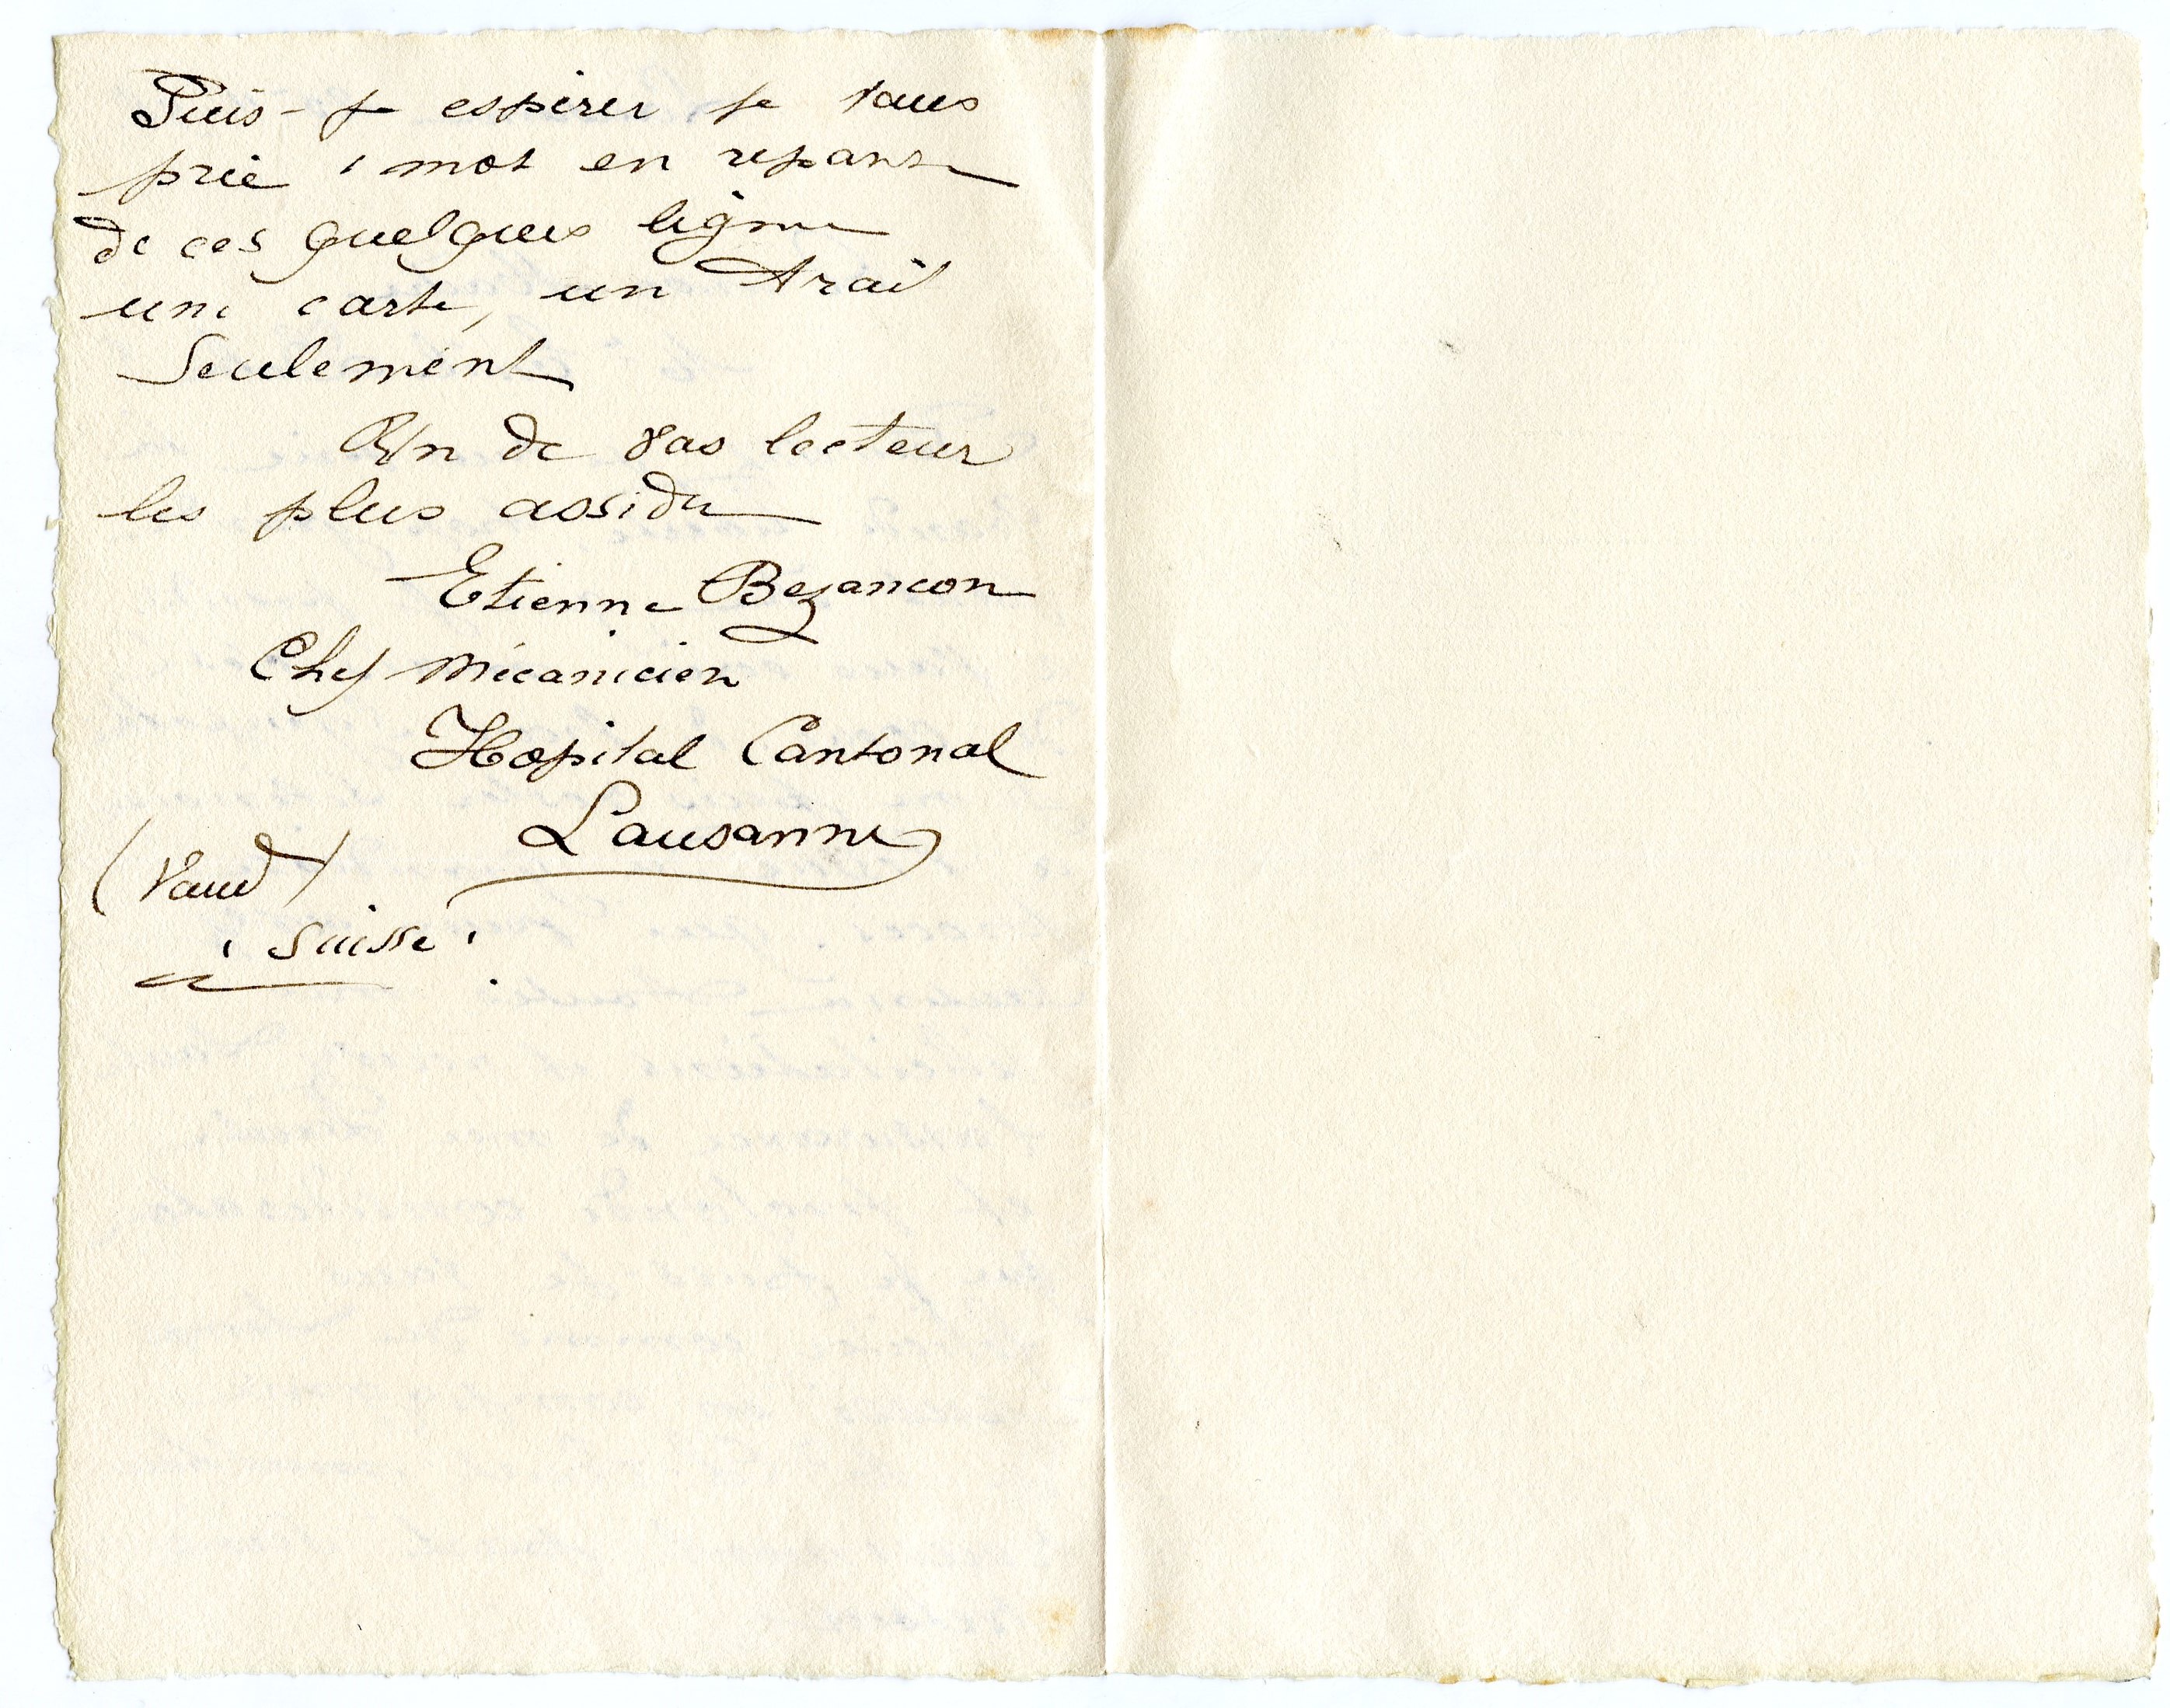 Puis-je espérer je vous
prie 1 mot en reponse
de ces quelques ligne
une carte, un trait
Seulement
Un de vos lecteur
les plus assidu
Etienne Bezancon
Chef Mécanicien
Hopital Cantonal
Lausanne
(Vaud)
Suisse